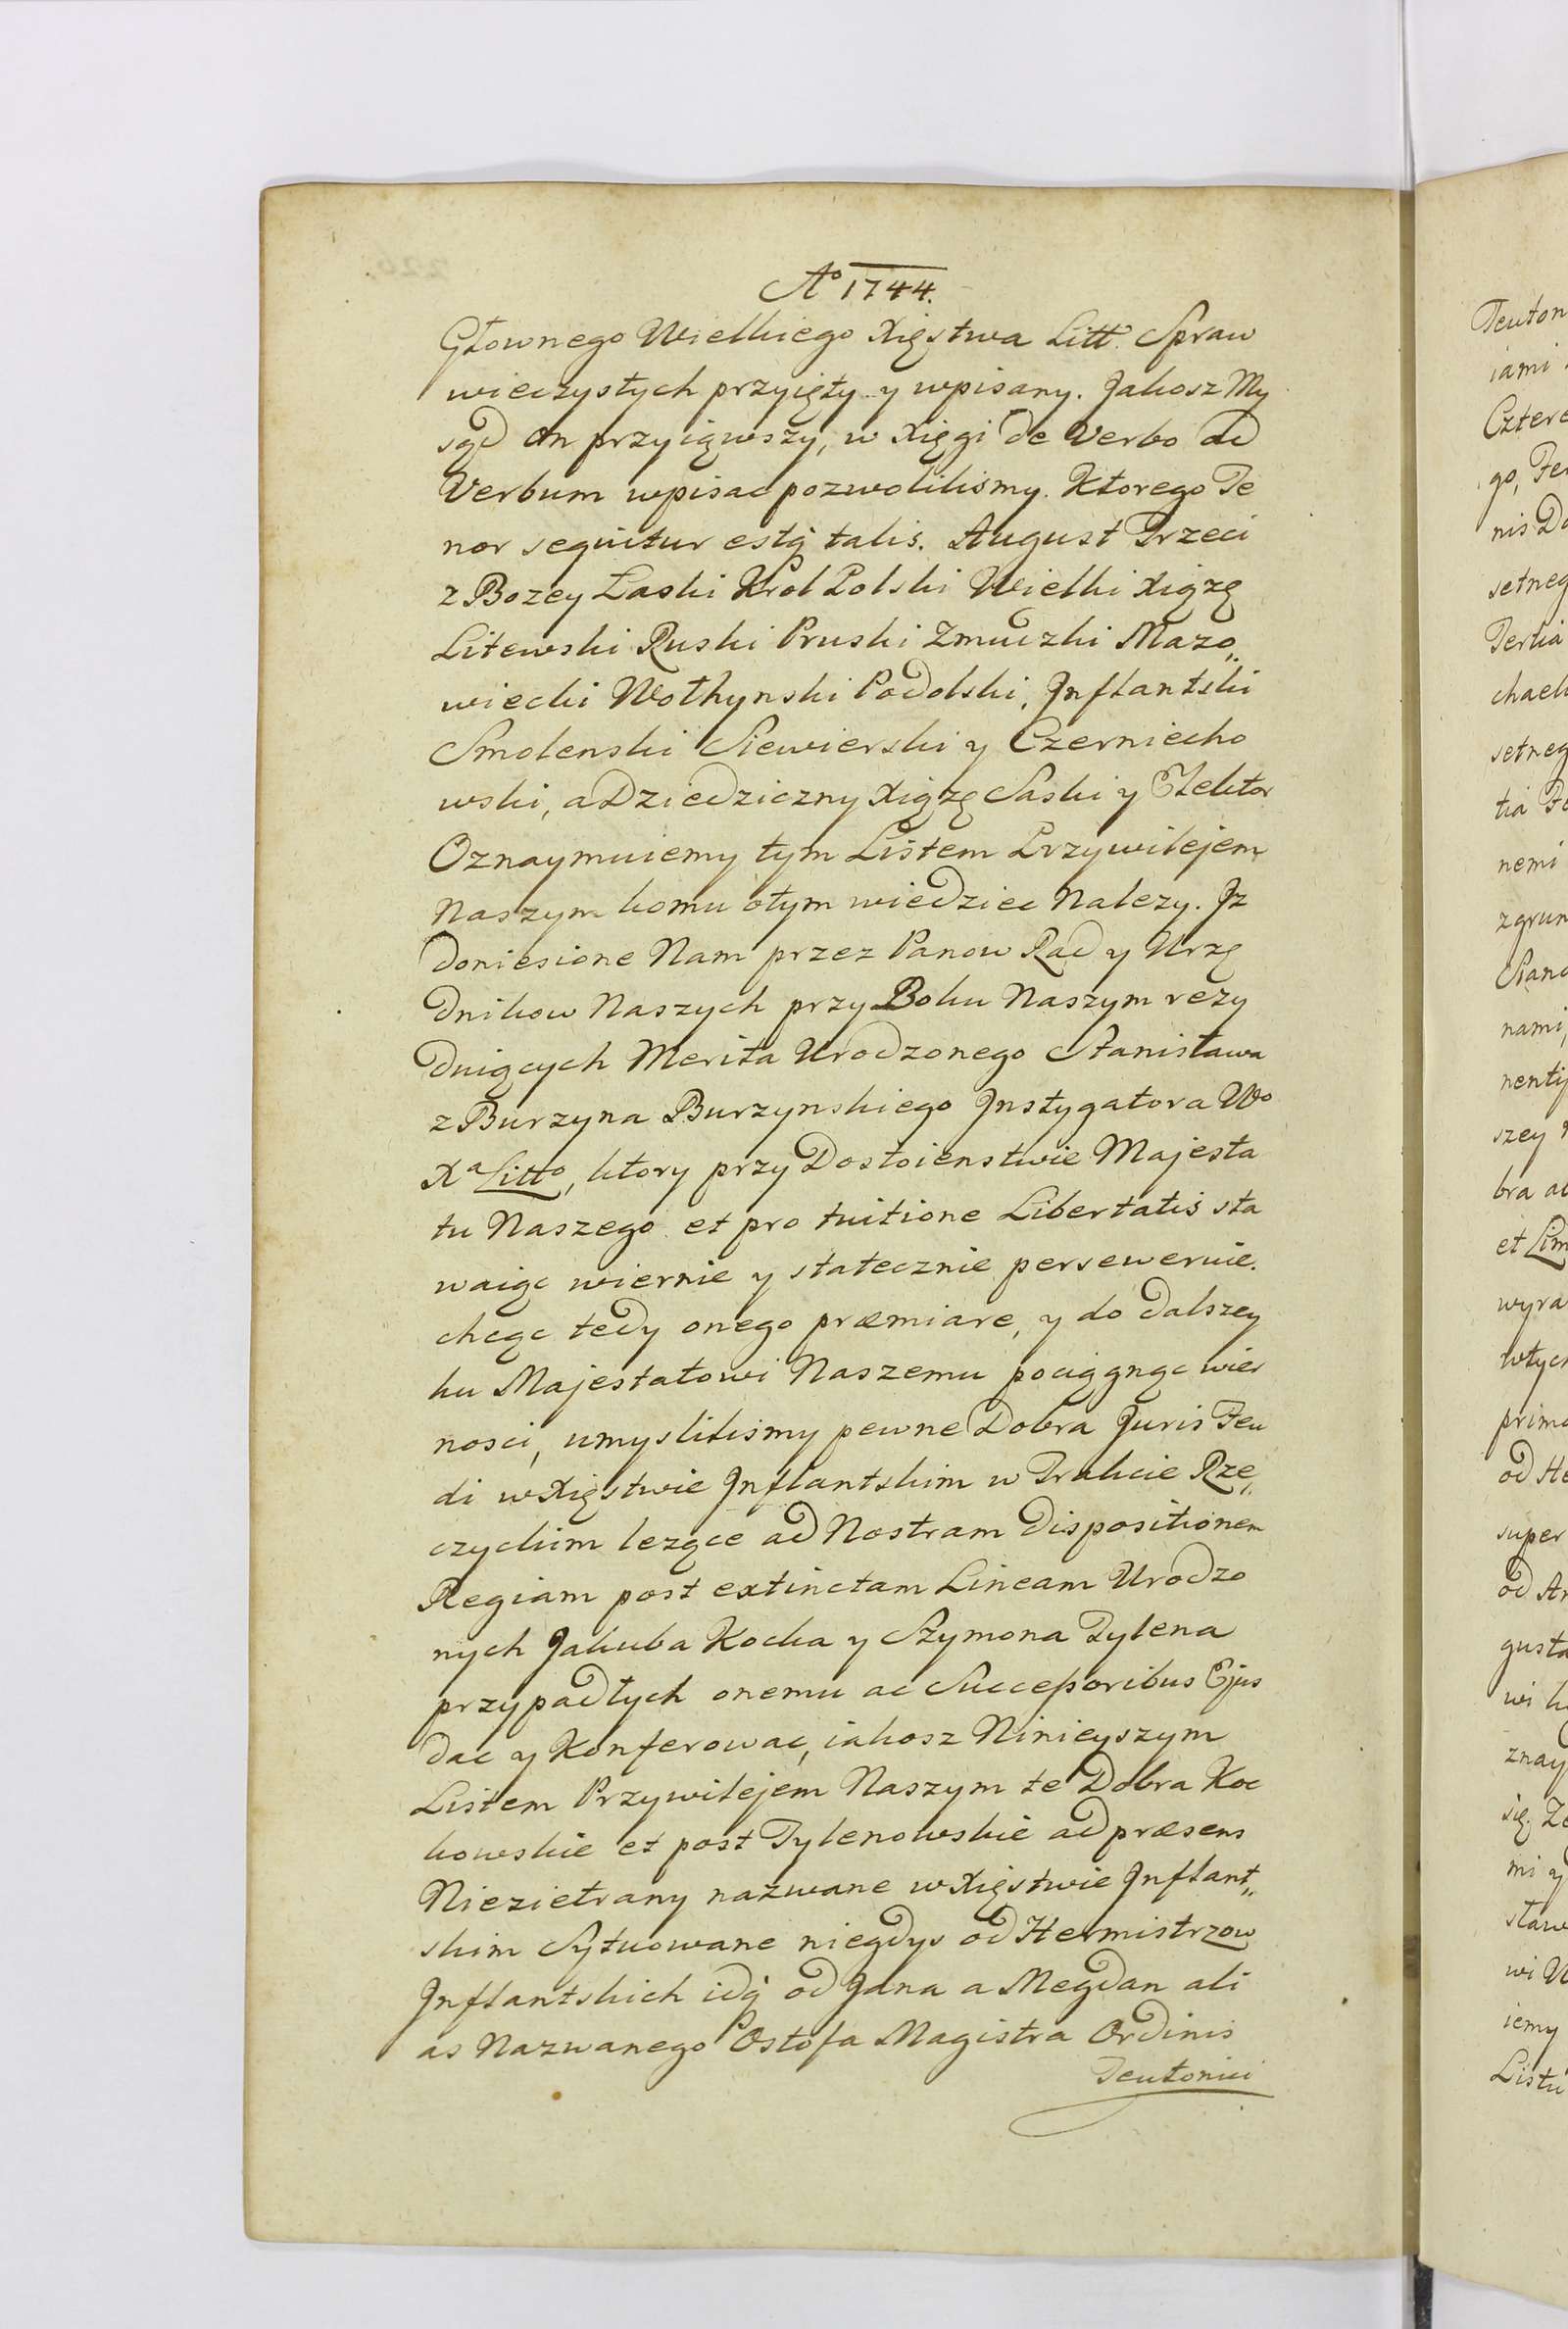 Aº 1744.
Głownego Wielkiego Xięstwa Litt. Spraw
wieczystych przyięty y wpisany. Jakosz My
sąd On przyiąwszy, w Xięgi de Verbo ad
Verbum wpisac pozwolilismy. Ktorego Te
nor sequitur estq talis. August Trzeci
z Bozey Łaski Krol Polski Wielki Xiązę
Litewski Ruski Pruski Zmudzki Mazo„
wiecki Wołhynski Podolski, Jnflantski
Smolenski Siewierski y Czerniecho
wski, a Dziedziczny Xiązę Saski y Elektor
Oznaymuiemy tym Listem Przywilejem
Naszym komu otym wiedziec Nalezy. Jz
doniesione Nam przez Panow Rad y Urzę
dnikow Naszych przy Boku Naszym rezy
duiących Merita Urodzonego Stanisława
z Burzyna Burzynskiego Jnstygatora Wº
Xª Littº, ktory przy Dostoienstwie Majesta
tu Naszego et pro tuitione Libertatis sta
waiąc wiernie y statecznie perseweruie.
chcąc tedy onego præmiare, y do dalszey
ku Majestatowi Naszemu pociągnąc wier
nosci, umyslilismy pewne Dobra Juris Feu
di w Xięstwie Jnflantskim w Trakcie Rze„
czyckim lezące ad Nostram dispositionem
Regiam post extinctam Lineam Urodzo
nych Jakuba Kocka y Szymona Tylena
przypadłych onemu ac Successoribus Ejus
dac y Konferowac, iakosz Ninieyszym
Listem Przywilejem Naszym te Dobra Koc
kowskie et post Tylenowskie ad præsens
Niezietrany nazwane w Xięstwie Jnflant„
skim Sytuowane niegdys od Hermistrzow
Jnflantskich idq od Jana a Megdan ali
as Nazwanego Ostofa Magistra Ordinis
Teutonici
Teuton
iami
Cztere
go, Fe
nis Do
setneg
Tertia
chaeli
setneg
tia Fe
nemi
zgrun
Siano
nami,
nentij
szey
bra ad
et Lim
wyra
wtych
prima
od He
super
od An
gusta
wi k
znay
się. Ze
mi y
staw
wi U
iemy
Listu